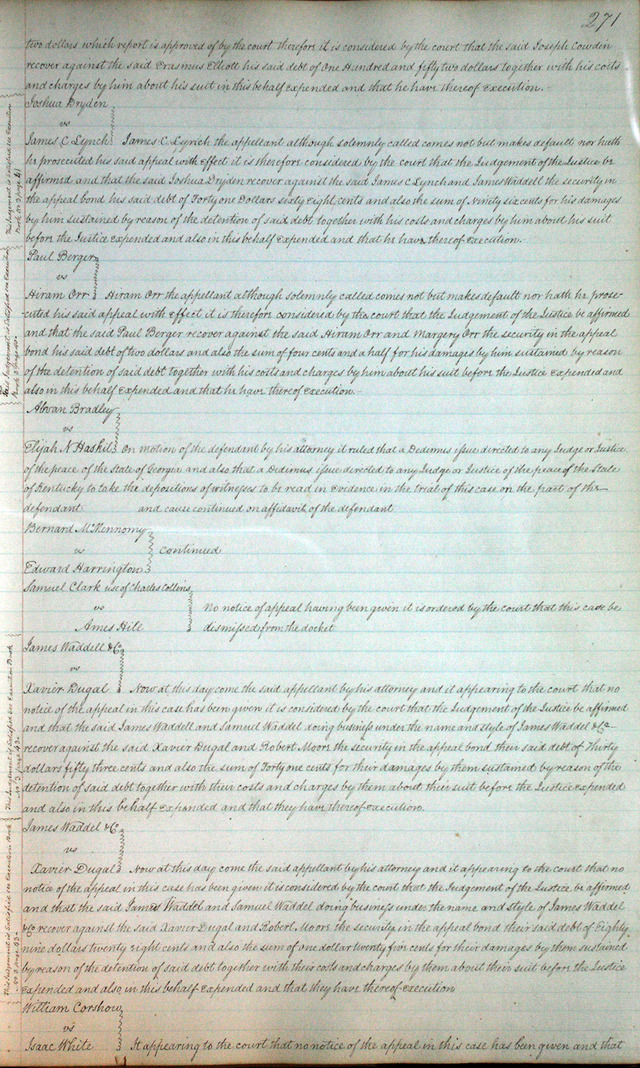 271
two dollars which report is approved of by the court therefore it is considered by the court that the said Joseph Cowden
recover against the said Erasmus Ellcott his said debt of One Hundred and fifty two dollars together with his costs
and charges by him about his suit in this behalf expended and that he have thereof execution.
Joshua Dryden
vs
James C Lynch James C. Lynch the appellant although solemnly called comes not but makes default nor hath
he prosecuted his said appeal with effect it is therefore considered by the court that the Judgement of the Justice be
affirmed and that the said Joshua Dryden recover against the said James C Lynch and James Waddell the security in
the appeal bond his said debt of Forty one Dollars sixty eight cents and also the sum of Ninety six cents for his damages
by him sustained by reason of the detention of said debt together with his costs and charges by him about his suit
before the Justice expended and also in this behalf expended and that he have thereof execution.
Paul Berger
vs
Hiram Orr Hiram Orr the appellant although solemnly called comes not but makes default nor hath he prose-
cuted his said appeal with effect it is therefore considered by the court that the Judgement of the Justice be affirmed
and that the said Paul Berger recover against the said Hiram Orr and Margery Orr the security in the appeal
bond his said debt of two dollars and also the sum of four cents and a half for his damages by him sustained by reason
of the detention of said debt together with his costs and charges by him about his suit before the Justice expended and
also in this behalf expended and that he have thereof execution.
Abvan Bradley
vs
Elijah N Haskil On motion of the defendant by his attorney it ruled that a Dedimus issue directed to any Judge or Justice
of the peace of the State of Georgia and also that a Dedimus issue directed to any Judge or Justice of the peace of the State
of Kentucky to take the depositions of witnesses to be read in evidence in the trial of this case on the part of the
defendant and cause continued on affidavit of the defendant
Bernard McKennomy
vs continued
Edward Harrington
Samuel Clark use of Charles Collins
vs No notice of appeal having been given it is ordered by the court that this case be
Ames Hile dismissed from the docket
James Waddell & Co
vs
Xavier Dugal Now at this day come the said appellant by his attorney and it appearing to the court that no
notice of the appeal in this case has been given it is considered by the court that the Judgement of the Justice be affirmed
and that the said James Waddell and Samuel Waddel doing business under the name and style of James Waddel & Co
recover against the said Xavier Dugal and Robert Moore the security in the appeal bond their said debt of Thirty
dollars fifty three cents and also the sum of Forty one cents for their damages by them sustained by reason of the
detention of said debt together with their costs and charges by them about their suit before the Justice expended
and also in this behalf expended and that they have thereof execution.
James Waddel & Co
vs
Xavier Dugal Now at this day come the said appellant by his attorney and it appearing to the court that no
notice of the appeal in this case has been given it is considered by the court that the Judgement of the Justice be affirmed
and that the said James Waddel and Samuel Waddel doing business under the name and style of James Waddel
& Co recover against the said Xavier Dugal and Robert Moore the security in the appeal bond their said debt of Eighty
nine dollars twenty eight cents and also the sum of one dollar twenty five cents for their damages by them sustained
by reason of the detention of said debt together with their costs and charges by them about their suit before the Justice
expended and also in this behalf expended and that they have thereof execution
William Corshow
vs
Isaac White It appearing to the court that no notice of the appeal in this case has been given and that